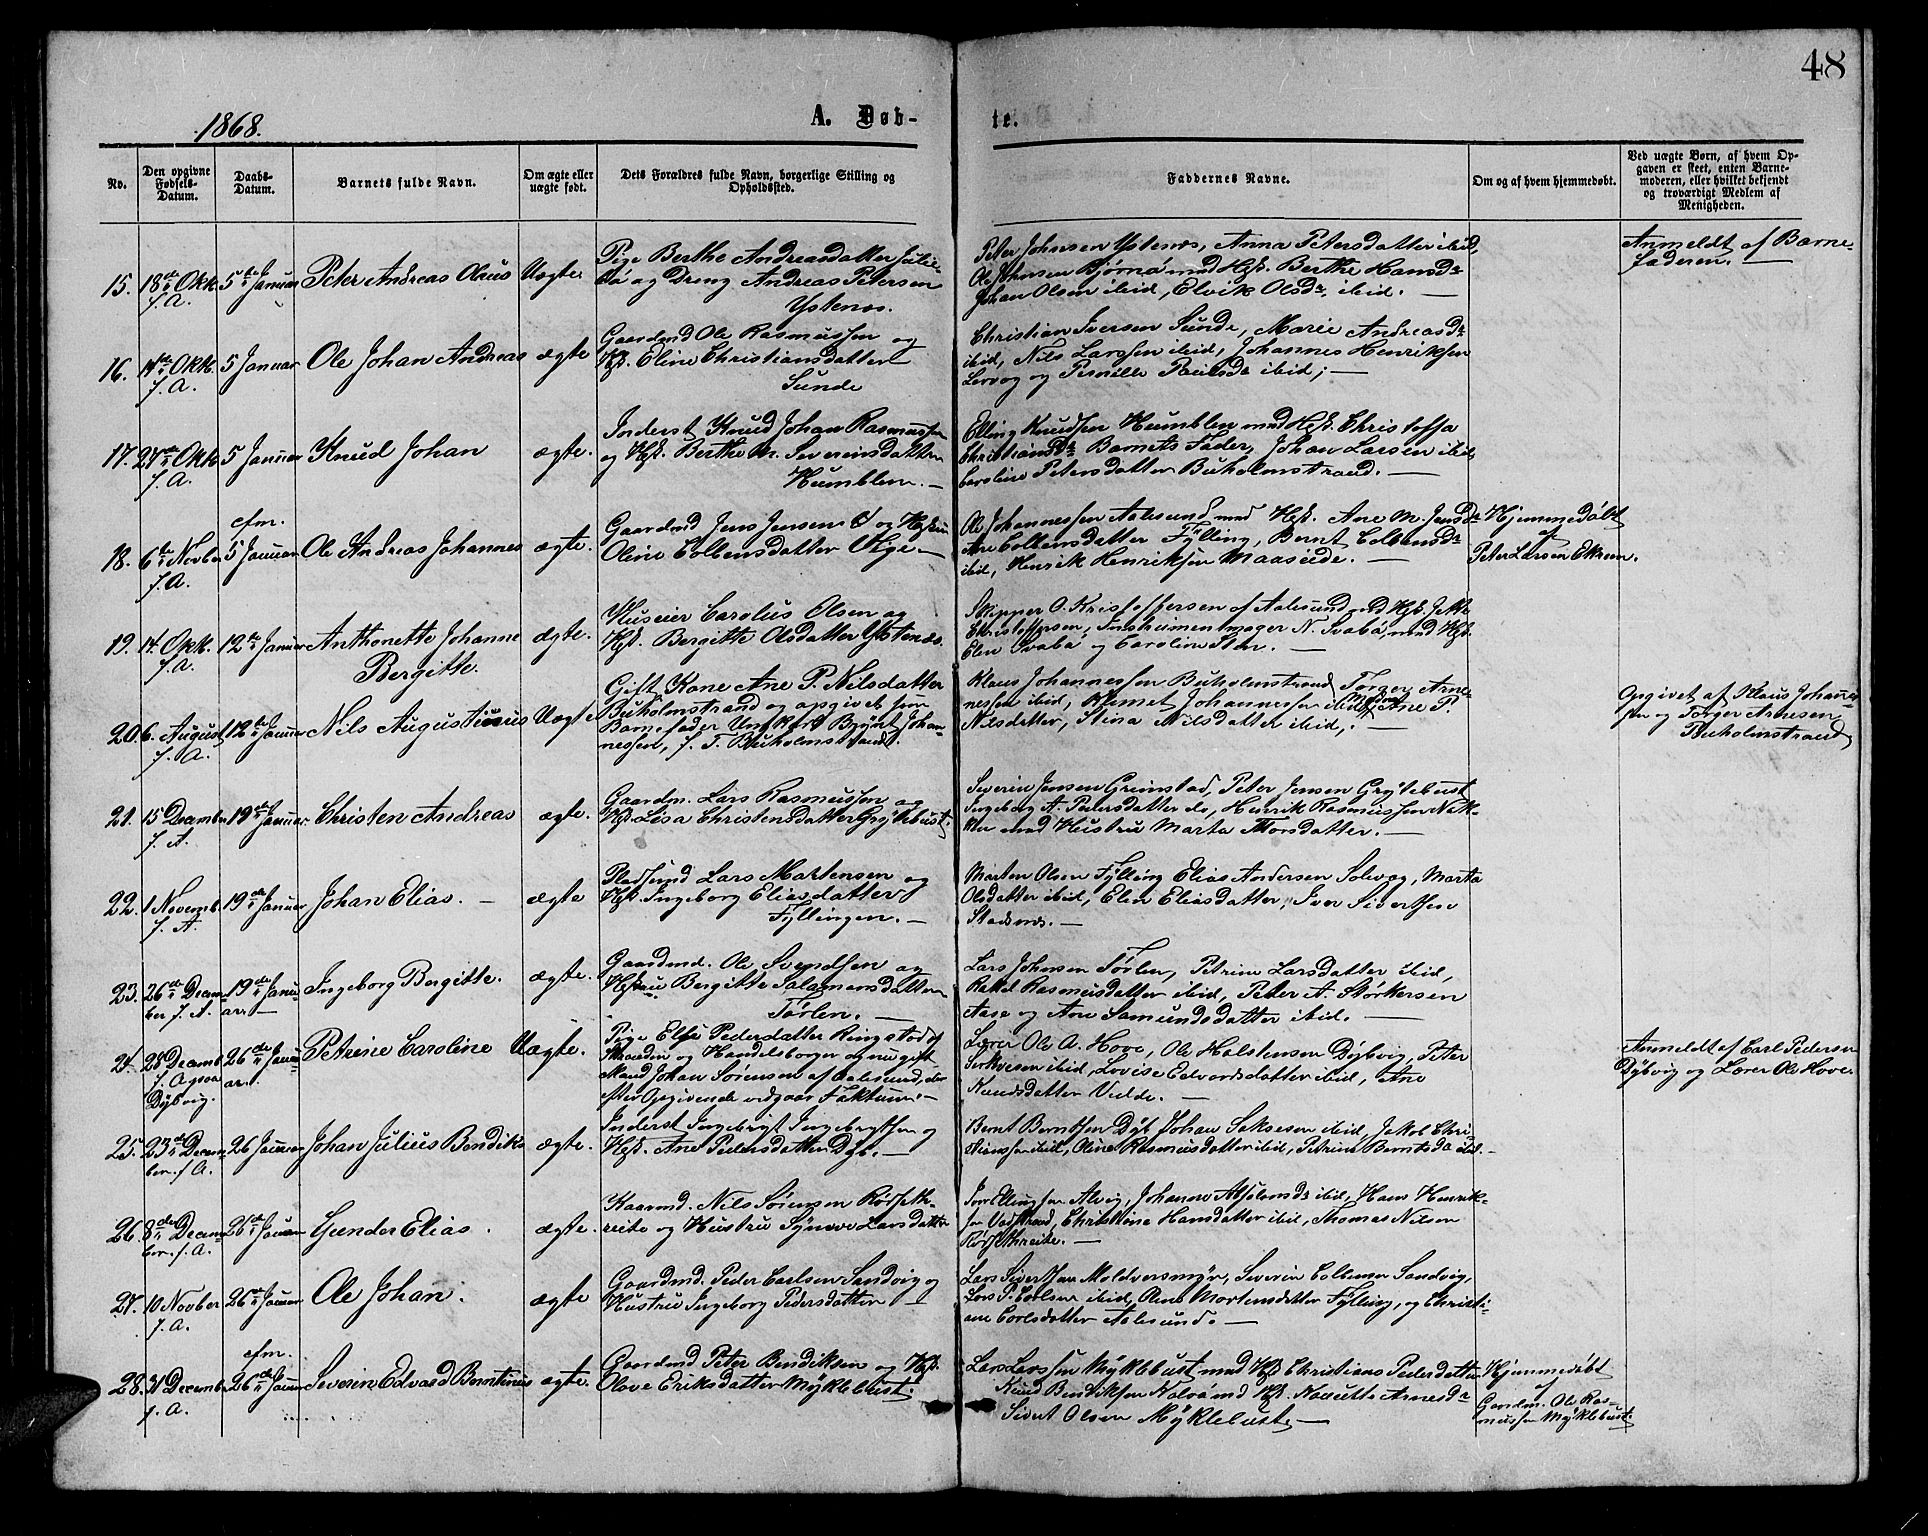 48
1868.
A. Døb-
te.
No.
Den opgivne
Fødsels-
Datum.
Daabs-
Datum.
Barnets fulde Navn.
Om ægte eller
uægte født.
Dets Forældres fulde Navn, borgerlige Stilling og
Opholdssted.
Faddernes Navne.
Om og af hvem hjemmedøbt.
Ved uægte Børn, af hvem Op-
gaven er skeet, enten Barne-
moderen, eller hvilket bekjendt
og troværdigt Medlem af
Menigheden.
15. 18de Oktb. f. A.
5te Januar
Peter Andreas Olaus
Uægte.
Pige Berthe Andreasdatter
og Dreng Andreas Petersen
Ystenæs.
Peter Johnsen Ystenæs, Anna Petersdatter ibid,
Ole Johnsen Bjørnø med Hst. Berthe Hansdr
Johan Olsen ibid, Elvik Olsdr, ibid. —
Anmeldt af Barne-
faderen. —
16. Oktb. f. A.
5 Januar
Ole Johan Andreas
ægte
Gaardmd Ole Rasmussen og
Hst. Eline Christiansdatter
Sunde
Christian Iversen Sunde, Marie Andreasdr
ibid, Nils Larssen ibid, Johannes Henriksen
Lervog og Pernille ibid; —
17. 27de Oktb. f. A.
5 Januar
Knud Johan
ægte.
Inderst Knud Johan Rasmussen
og Hst. Berthe M. Severinsdatter
Humblen. —
Elling Knudsen Humblen med Hst. Christoffa
Christiansdr Barnets Fader, Johan Larsen ibid,
Caroline Petersdatter Buholmstrand. —
18. 6te Novber f. A.
cfm.
5 Januar
Ole Andreas Johannes
ægte.
Gaardmd Jens Jensen og Hustru
Oline Colbensdatter —
Ole Johannessen Aalesund med Hst. Ane M. Jensdr
Ane Colbensdatter Fylling, Bernt
ibid, Henrik Henriksen Maaseide. —
Hjemmedøbt
af
Peter Larsen Ekrem.
19. 14. Oktb. f. A.
12te Januar
Anthonette Johanne
Bergitte.
Ægte.
Huseier Carolus Olsen og
Hst. Bergitte Olsdatter Ystenæs.
Skipper O. Kristoffersen af Aalesund med Hst.
Christoffersen, Instrumentmager N. Svabø, med Hst.
Elen Svabø og Caroline —
20. 6. August f. A.
12te Januar
Nils Augustinus
Uægte
Gift Kone Ane P. Nilsdatter
Buholmstrand og opgivet som
Barnefader Ungkarl Johan-
nessen, f. T. Buholmstrand.
Klaus Johannessen Buholmstrand Torger Arne-
nessen ibid, Klemet Johannessen ibid Ane P.
Nilsdatter, Stina Nilsdatter ibid, —
Opgivet af Klaus Johanes-
sen og Torger Arnesen
Buholmstrand
21. 15 Decembr f. A.
19de Januar
Christen Andreas
ægte.
Gaardm. Lars Rasmussen og
Hst. Lisa Christensdatter Grytebust.
Severin Jensen Grimstad, Peter Jensen Grytebust
Ingeborg A. Pedersdatter do, Henrik Rasmussen
med Hustru Marta Thorsdatter. —
22. 1 Novemb. f. A.
19de Januar
Johan Elias. —
ægte
Pladsmd Lars Martensen og
Hst. Ingeborg Eliasdatter
Fyllingen. —
Marten Olsen Fylling Elias Andersen Solevog, Marta
Olsdatter ibid, Elen Eliasdatter, Iver Sivertsen
Stadsnes. —
23. 26de Decem-
ber f. A
19de Janu-
ar. —
Ingeborg Bergitte.
ægte.
Gaardmd. Ole Svendsen og
Hstru Bergitte Salamonsdatter
Tørlen. —
Lars Johnsen Tørlen, Petrine Larsdatter ibid,
Rakel Rasmusdatter ibid, Peter A. Størkersen
Aase og Ane Samundsdatter ibid. —
24. 28 Decemb f. A paa
Dybvig.
26de Janu-
ar.
Petrine Caroline
Uægte.
Pige Else Pedersdatter Ringstad
og Handelsborger og nu gift
Mand Johan Sørensen af Aalesund, der
efter Opgivende vedgaar Faktum. —
Lærer Ole A. Hove, Ole Halstensen Dybvig, Peter
ibid, Lovise Edvardsdatter ibid, Ane
Knudsdatter Velde. —
Anmeldt af Carl Pedersen
Dybvig og Lærer Ole Hove.
25. 23de Decem-
ber. f. A.
26 Januar
Johan Julius Bendiks
ægte.
Inderst Ingebrigt Ingebrigtsen og
Hst. Ane Pedersdatter Dyb. —
Bernt Berntsen Dyb Johan ibid, Jakob Chri-
stiansen ibid, Oline Rasmusdatter ibid, Petrine Berntsdr ibid. —
26. 8de Decem-
ber. f. A.
26de Januar
Gunder Elias.
ægte.
Gaardmd. Nils Sørensen Rødseth-
reite og Hustru Synove Larsdatter
Ellingsen Alvig, Johanne Absalonsdr ibid, Hans Henrik-
sen Vadstrand, Christine Hansdatter ibid, Thomas Nilsen
Rødsethreite. —
27. 10 Novber f. A.
26de Januar
Ole Johan.
ægte
Gaardmd. Peder Carlsen Sandvig og
Hustru Ingeborg Pedersdatter —
Lars Sivertsen Moldversmyr, Severin Sandvig,
Lars P. Carlsen ibid, Oline Mortensdatter Fylling, og Christi-
ane Carlsdatter Aalesund. —
28. 21 Decemb f. A.
cfm.
26de Januar
Severin Edvard Berntinus
ægte.
Gaardmd Peter Bendiksen og Hst.
Olave Eriksdatter Myklebust.
Lars Larssen Myklebust med Hst Christiane Pedersdatter
Knud Bendiksen Valvø med Hst. Arnesdr
Sivert Olsen Myklebust —
Hjemmedøbt
af
Gaardm. Ole Ras-
mussen Myklebust.